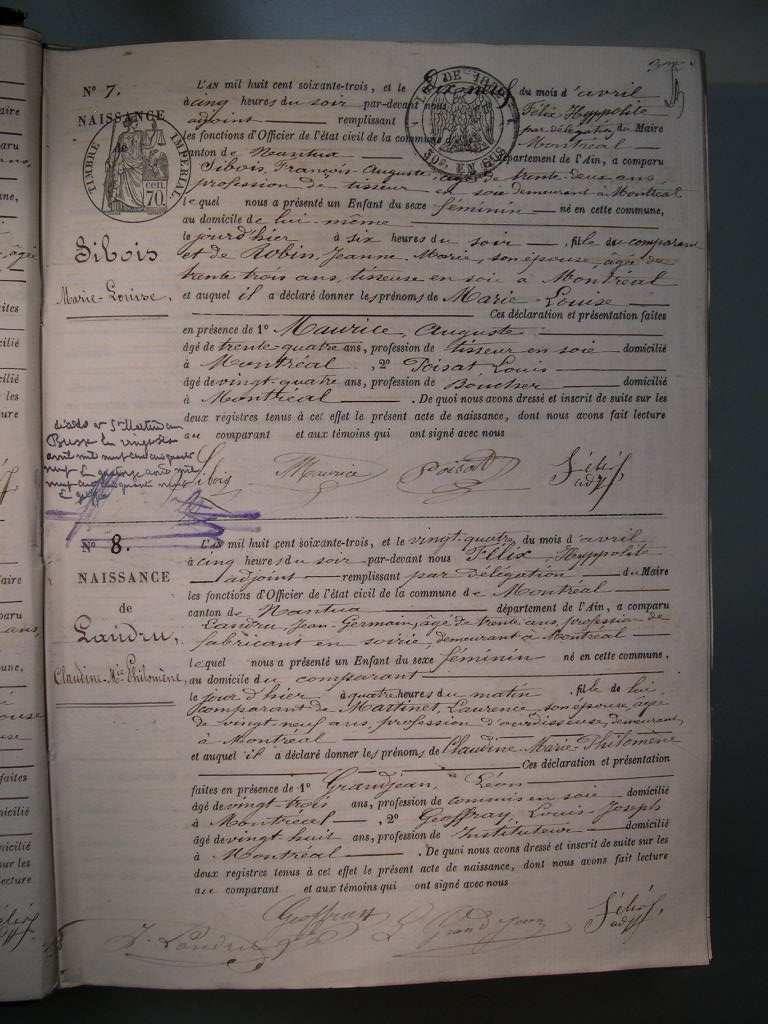 N° 7.
NAISSANCE
de
TIMBRE IMPÉRIAL
70 cen
Sibois
Marie-Louise,
L'AN mil huit cent soixante-trois, et le du mois d'avril
à cinq heures du soir par-devant nous Félix Hyppolite
adjoint remplissant par délégation du Maire
les fonctions d'Officier de l'état civil de la commune de Montréal
canton de Nantua département de l'Ain, a comparu
Sibois, François-Auguste, âgé de trente-deux ans,
profession de tisseur en soie demeurant à Montréal
lequel nous a présenté un Enfant du sexe féminin né en cette commune,
au domicile de lui-même
le jour d'hier à six heures du soir, fille du comparant
et de Robin, Jeanne Marie, son épouse, âgée de
trente trois ans, tisseuse en soie à Montréal
et auquel il a déclaré donner les prénoms de Marie-Louise
Ces déclaration et présentation faites
en présence de 1° Maurice, Auguste
âgé de trente-quatre ans, profession de tisseur en soie domicilié
à Montréal, 2° Poisat, Louis
âgé de vingt-quatre ans, profession de Boucher domicilié
à Montréal. De quoi nous avons dressé et inscrit de suite sur les
deux registres tenus à cet effet le présent acte de naissance, dont nous avons fait lecture
au comparant et aux témoins qui ont signé avec nous
Sibois Maurice Poisat Félix
adj
N° 8.
NAISSANCE
de
Landru,
Claudine-Mie Philomène,
L'AN mil huit cent soixante-trois, et le vingt-quatre du mois d'avril
à cinq heures du soir par-devant nous Félix, Hyppolite
adjoint remplissant par délégation du Maire
les fonctions d'Officier de l'état civil de la commune de Montréal
canton de Nantua département de l'Ain, a comparu
Landru, Jean-Germain, âgé de trente ans, profession de
fabricant en soirie, demeurant à Montréal
lequel nous a présenté un Enfant du sexe féminin né en cette commune,
au domicile du comparant
le jour d'hier à quatre heures du matin, fille de lui
comparant de Martinet, Laurence, son épouse, âgée
de vingt neuf ans, profession d'ourdisseuse, demeurant
à Montréal
et auquel il a déclaré donner les prénoms de Claudine-Marie-Philomène
Ces déclaration et présentation
faites en présence de 1° Grandjean, Léon
âgé de vingt trois ans, profession de commis en soie domicilié
à Montréal, 2° Geoffray, Louis Joseph
âgé de vingt huit ans, profession de Instituteur domicilié
à Montréal. De quoi nous avons dressé et inscrit de suite sur les
deux registres tenus à cet effet le présent acte de naissance, dont nous avons fait lecture
au comparant et aux témoins qui ont signé avec nous
Geoffray
J. Landru L Grandjean Félix
adj